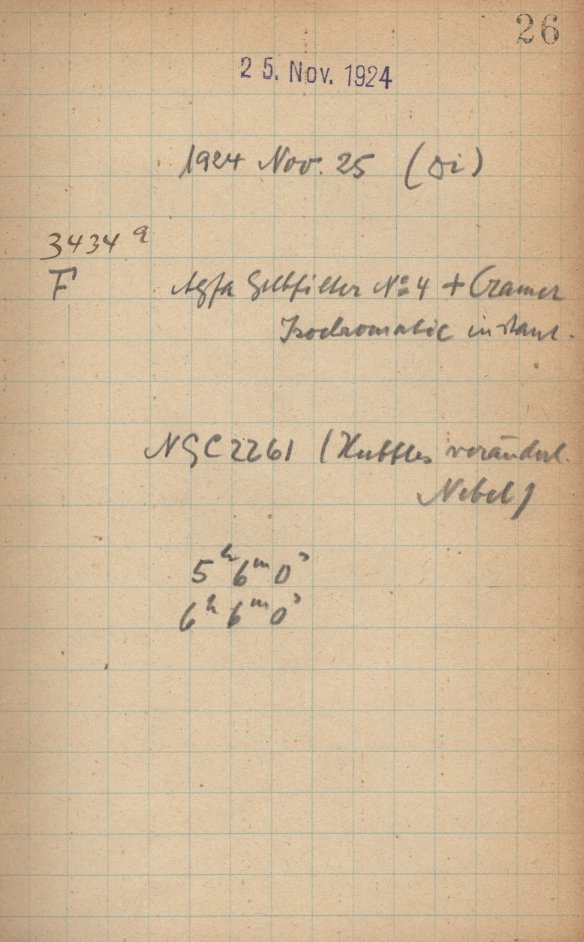 26
25. Nov. 1924
1924 Nov. 25 (Di)
3434 a
F Agfa Gelbfilter No 4 + Cramer
Isochromatic instant.
NGC 2261 (Hubbles veränderl.
Nebel)
5h 6m 0s
6h 6m 0s